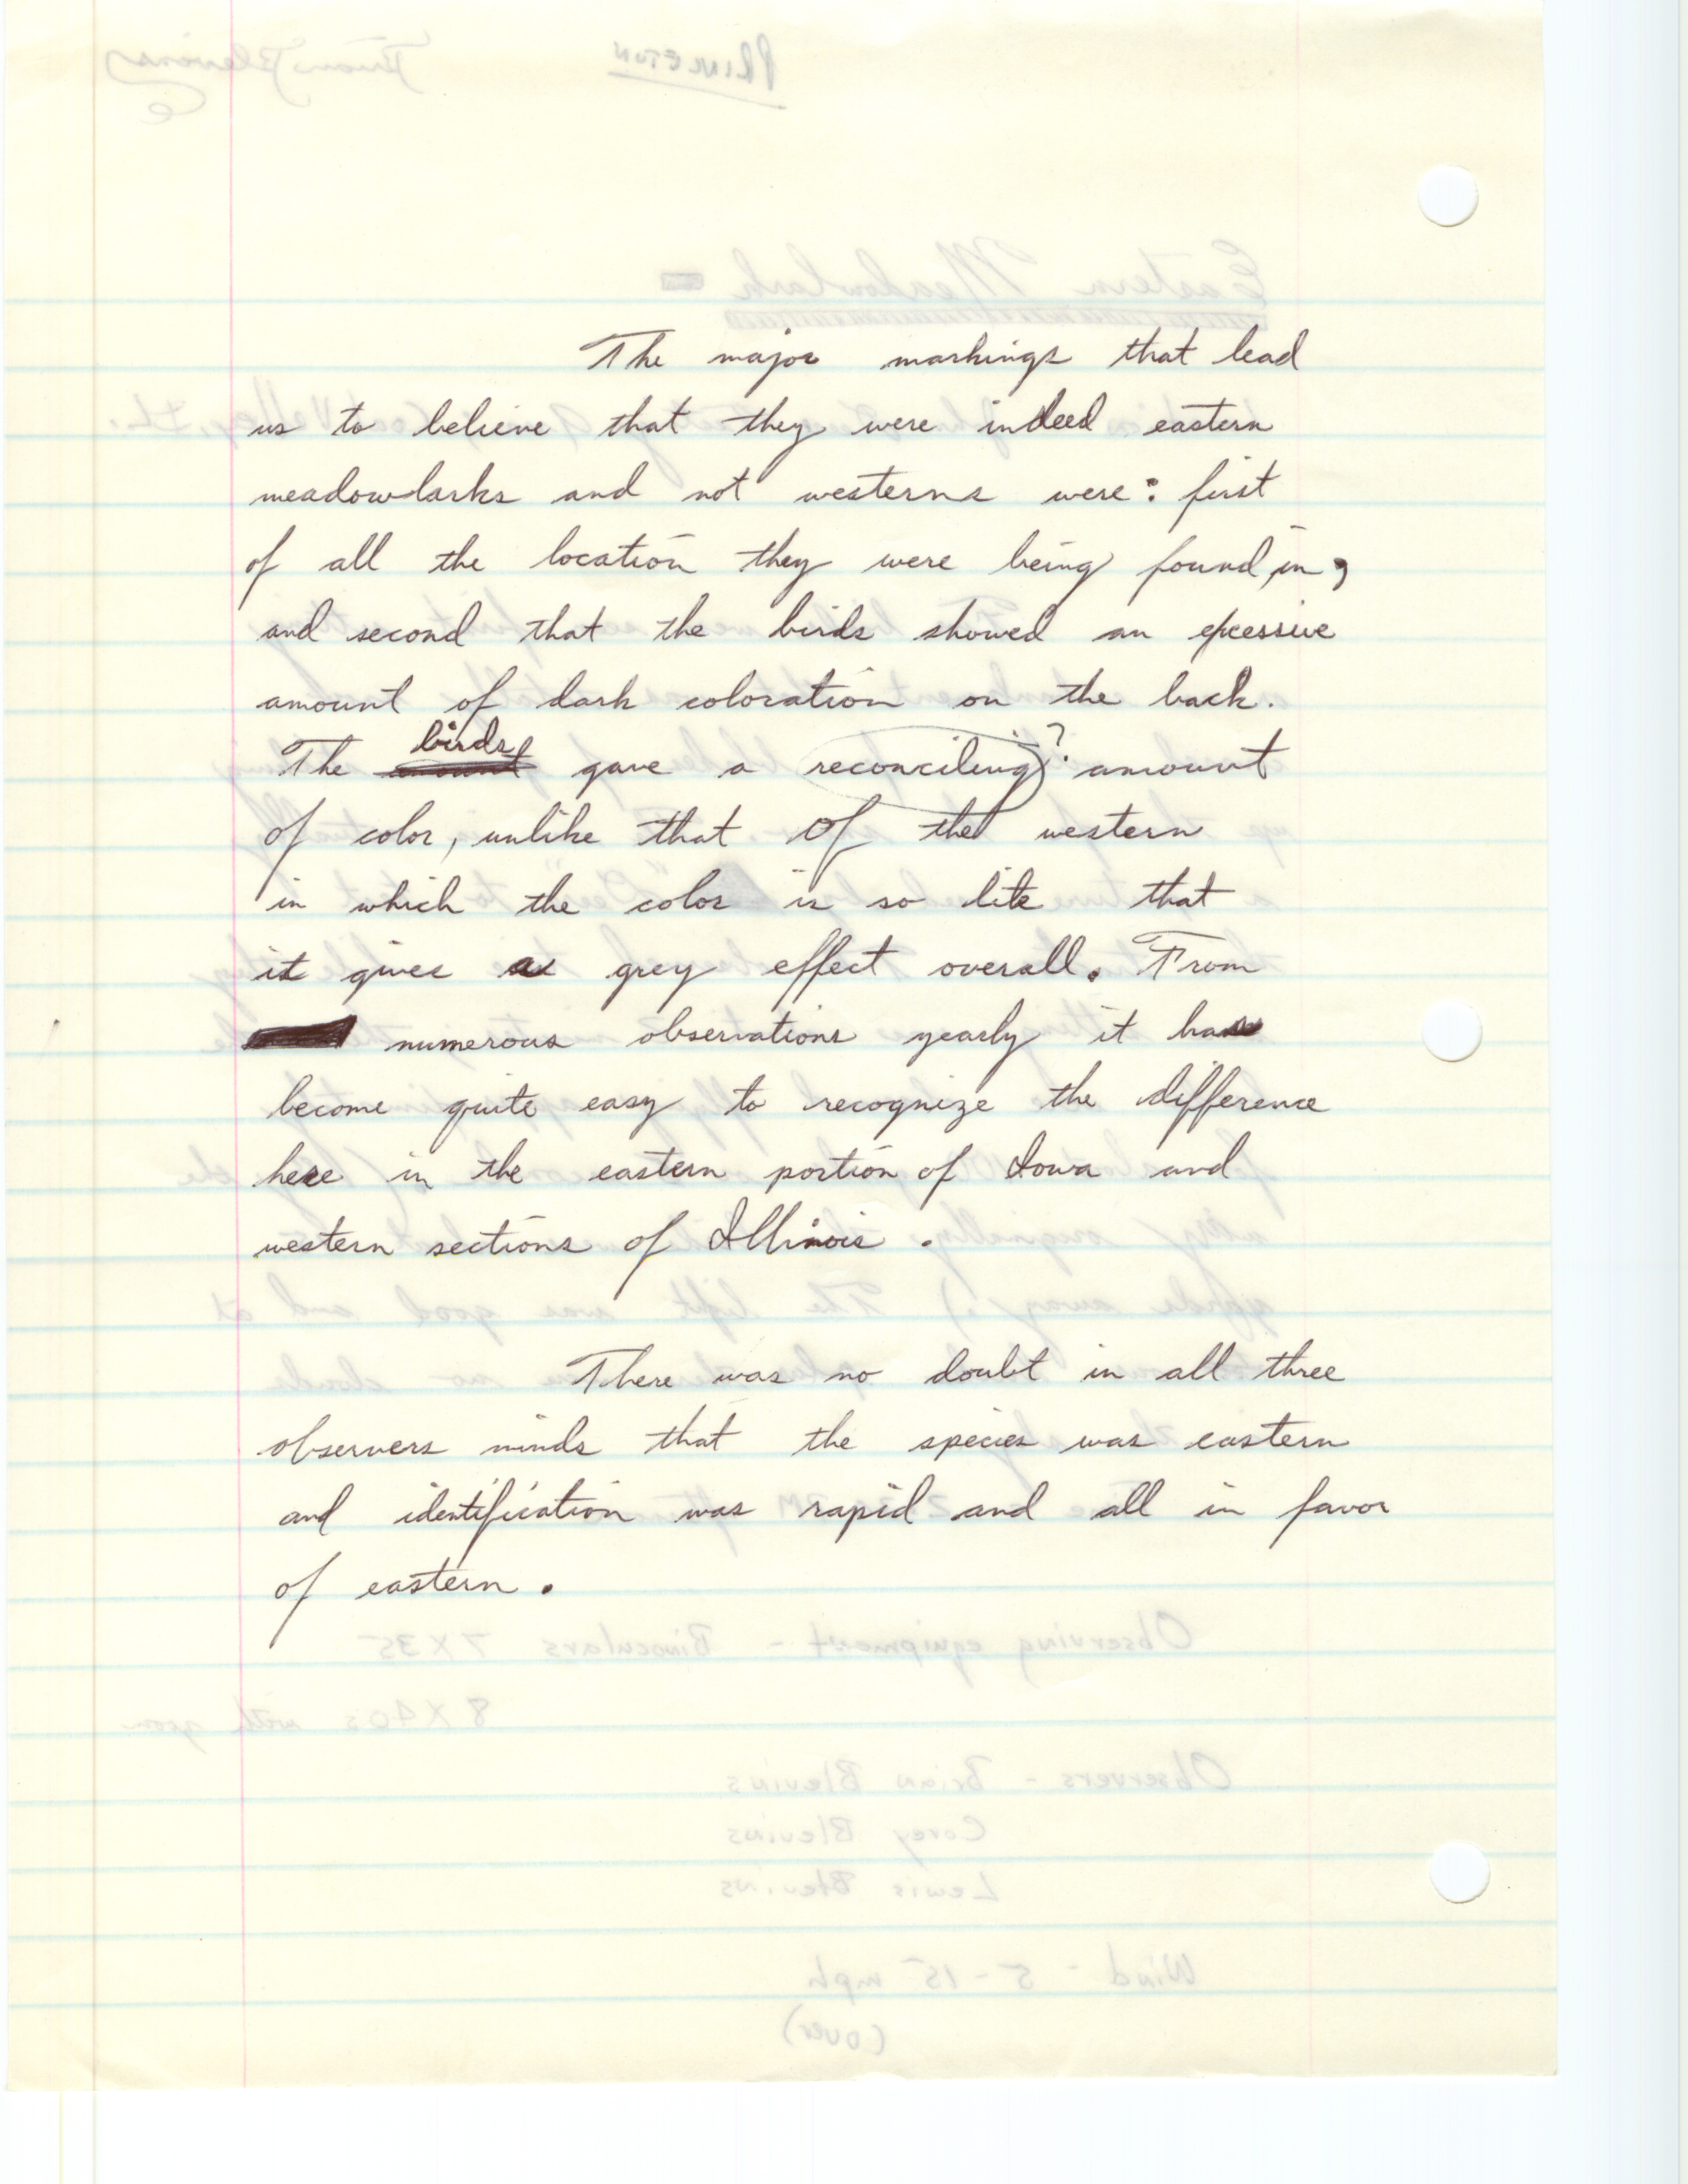 The major markings that lead
us to believe that they were indeed eastern
meadowlarks and not westerns were: first
of all the location they were being found in,
and second that the birds showed an excessive
amount of dark coloration on the back.
The birds gave a reconciling? amount
of color, unlike that of the western
in which the color is so lite that
it gives a grey effect overall. From
numerous observations yearly it has
become quite easy to recognize the difference
here in the eastern portion of Iowa and
western sections of Illinois.
There was no doubt in all three
observers minds that the species was eastern
and identification was rapid and all in favor
of eastern.